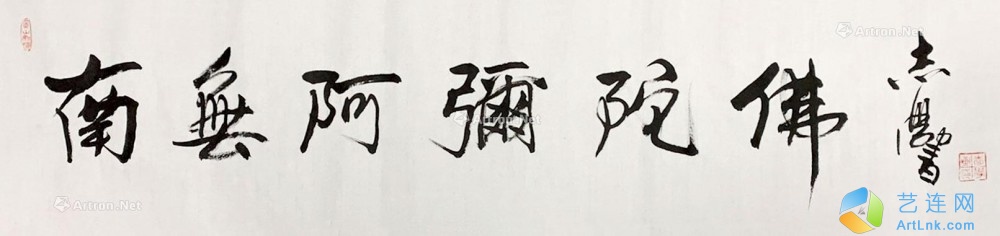 南無阿彌陀佛
志
書
Artron.Net
Artron.Net
Artron.Net
Artron.Net
艺连网
ArtLnk.com